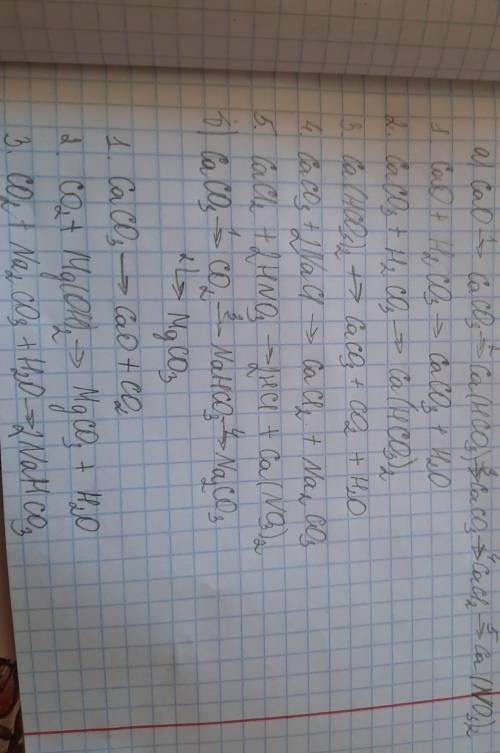 a) CaO → CaCO₃ →² Ca(HCO₃)₂ →³ CaCO₃ →⁴ CaCl₂ →⁵ Ca(NO₃)₂
1. CaO + H₂CO₃ → CaCO₃ + H₂O
2. CaCO₃ + H₂CO₃ → Ca(HCO₃)₂
3. Ca(HCO₃)₂ → CaCO₃ + CO₂ + H₂O
4. CaCO₃ + 2NaCl → CaCl₂ + Na₂CO₃
5. CaCl₂ + 2HNO₃ → 2HCl + Ca(NO₃)₂
b) CaCO₃ →¹ CO₂ →³ NaHCO₃ →⁴ Na₂CO₃
2↳ MgCO₃
1. CaCO₃ → CaO + CO₂
2. CO₂ + Mg(OH)₂ → MgCO₃ + H₂O
3. CO₂ + Na₂CO₃ + H₂O → 2NaHCO₃